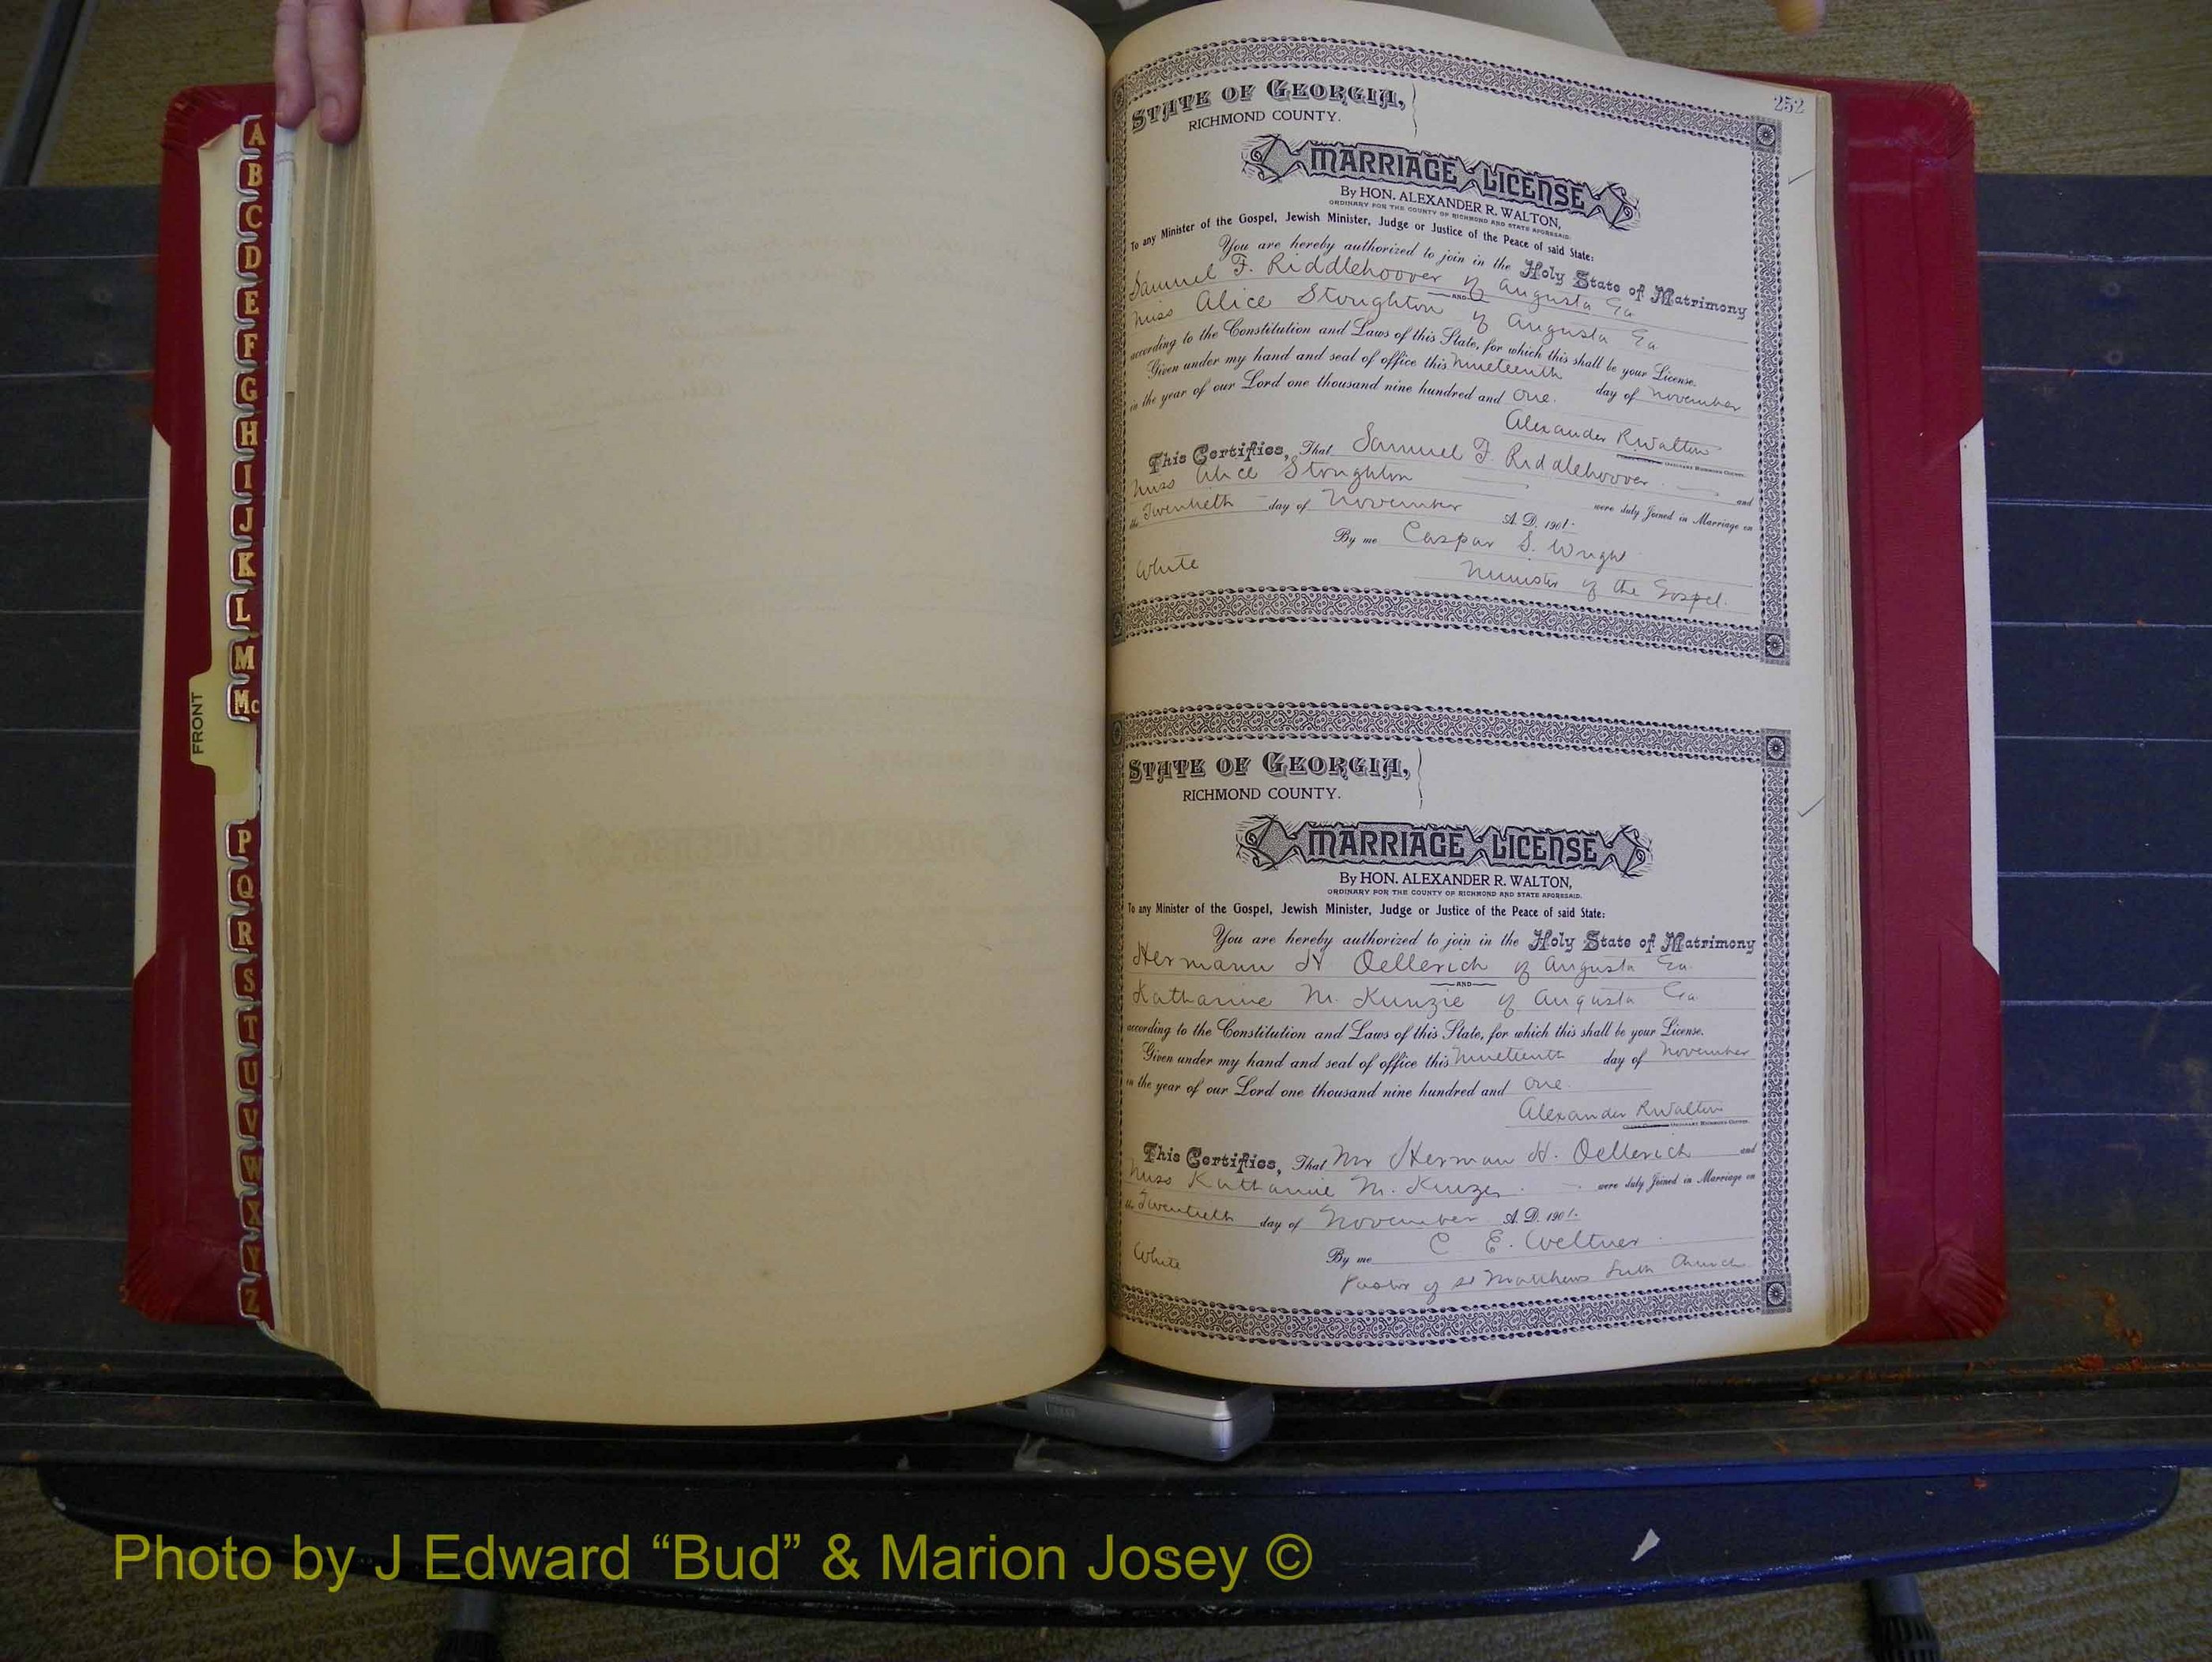 252
STATE OF GEORGIA,
RICHMOND COUNTY.
MARRIAGE LICENSE
By HON. ALEXANDER R. WALTON,
ORDINARY FOR THE COUNTY OF RICHMOND AND STATE AFORESAID.
To any Minister of the Gospel, Jewish Minister, Judge or Justice of the Peace of said State:
You are hereby authorized to join in the Holy State of Matrimony
Samuel F. Riddlehoover of Augusta Ga
AND
Miss Alice Stoughton of Augusta Ga
according to the Constitution and Laws of this State, for which this shall be your License.
Given under my hand and seal of office this Nineteenth day of November
in the year of our Lord one thousand nine hundred and One.
Alexander R Walton
ORDINARY RICHMOND COUNTY.
This Certifies, That Samuel F. Riddlehoover and
Miss Alice Stoughton were duly Joined in Marriage on
the Twentieth day of November A. D. 1901.
By me Caspar S. Wright
White Minister of the Gospel.
STATE OF GEORGIA,
RICHMOND COUNTY.
MARRIAGE LICENSE
By HON. ALEXANDER R. WALTON,
ORDINARY FOR THE COUNTY OF RICHMOND AND STATE AFORESAID.
To any Minister of the Gospel, Jewish Minister, Judge or Justice of the Peace of said State:
You are hereby authorized to join in the Holy State of Matrimony
Hermann H. Oellerich of Augusta Ga.
AND
Katharine M. Kunzie of Augusta Ga
according to the Constitution and Laws of this State, for which this shall be your License.
Given under my hand and seal of office this Nineteenth day of November
in the year of our Lord one thousand nine hundred and One.
Alexander R Walton
ORDINARY RICHMOND COUNTY.
This Certifies, That Mr Herman H. Oellerich and
Miss Katharine M. were duly Joined in Marriage on
the Twentieth day of November A. D. 1901.
By me C. E. Weltner
White Pastor of St Matthews Luth Church
A
B
C
D
E
F
G
H
I
J
K
L
M
Mc
FRONT
P
Q
R
S
T
U
V
W
X
Y
Z
Photo by J Edward “Bud” & Marion Josey ©